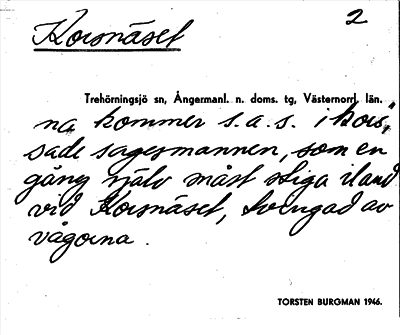 Korsnäset 2
Trehörningsjö sn, Ångermanl. n. doms. tg, Västernorrl. län.
na kommer s.a.s. i kors",
sade sagesmannen, som en
gång själv måst stiga iland
vid Korsnäset, tvingad av
vågorna.
TORSTEN BURGMAN 1946.